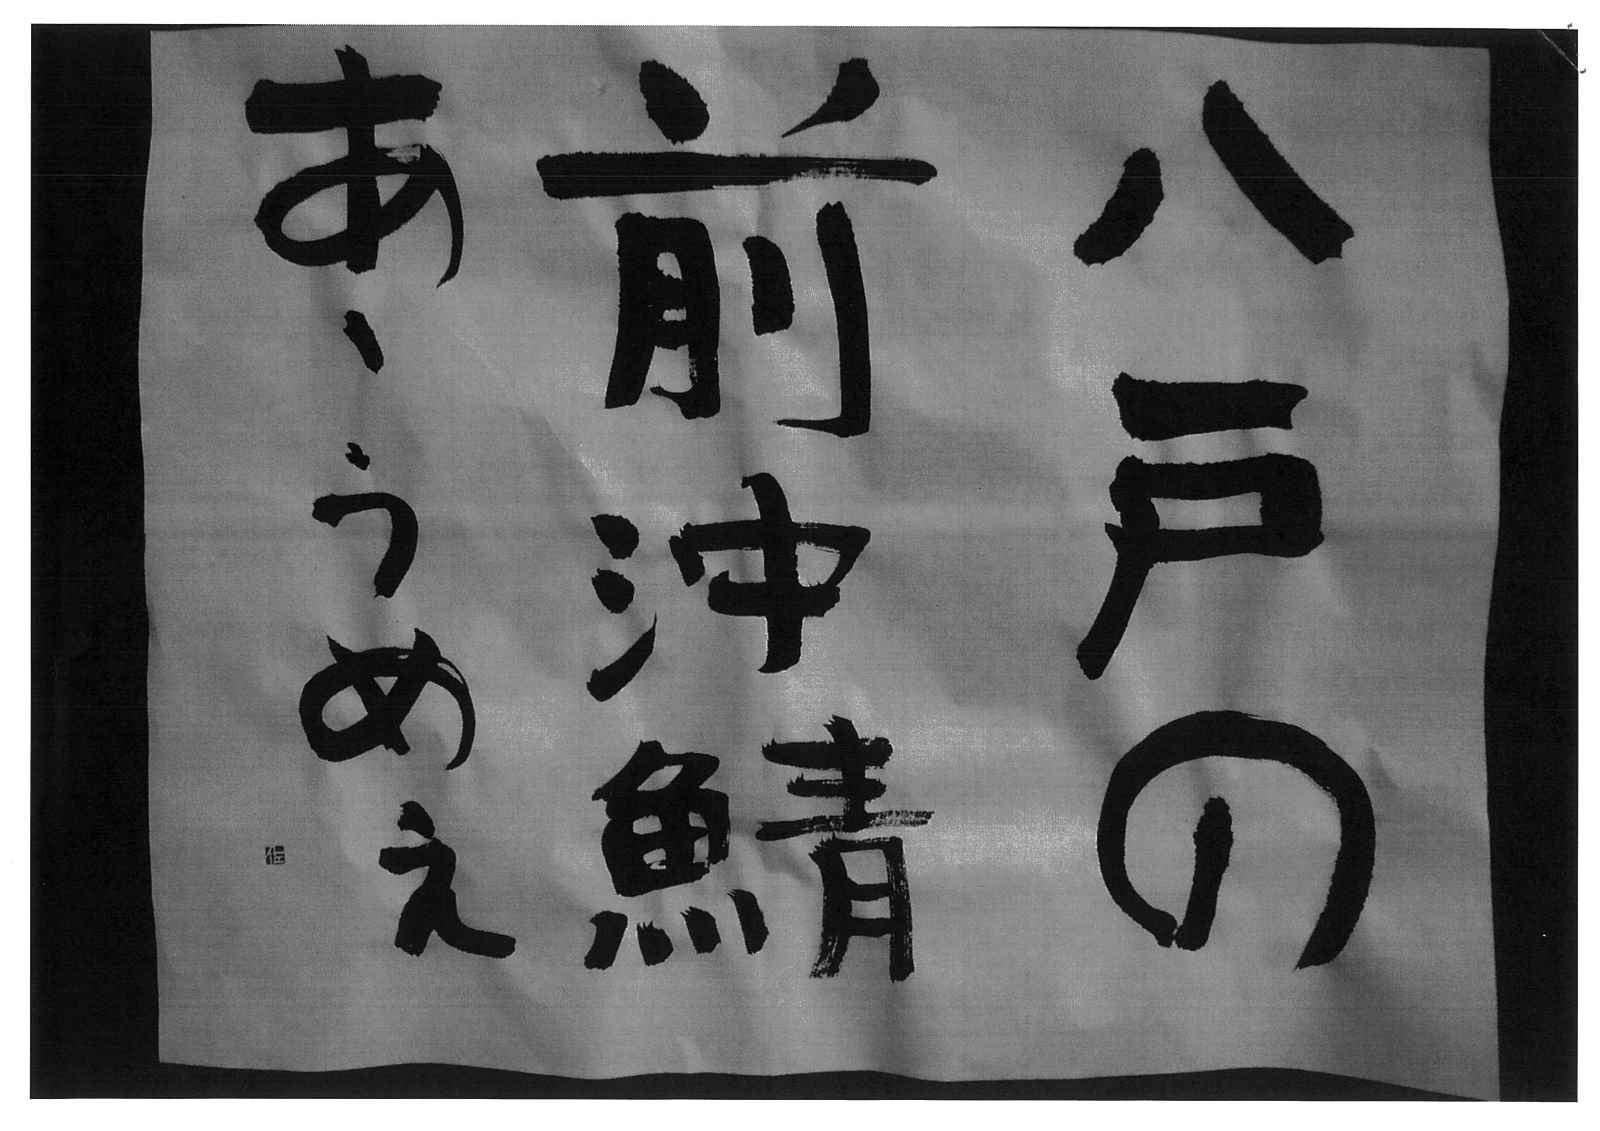 八戸の
前沖鯖
あゝうめえ